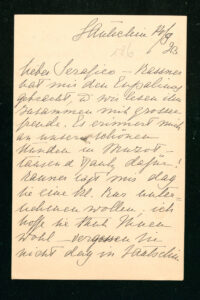 Lautschin 14/9
23
lieber Serafico – Kassner
hat mir den
gebracht, & wir lesen ihn
zusammen mit grosser
freude. Es erinnert mich
an unsere schönen
Stunden in Muzot –
tausend Dank dafür!
Kassner sagt mir dass
Sie eine kl. Kur unter-
nehmen wollen, ich
hoffe sie thut Ihnen
wohl – vergessen Sie
nicht dass in Lautschin